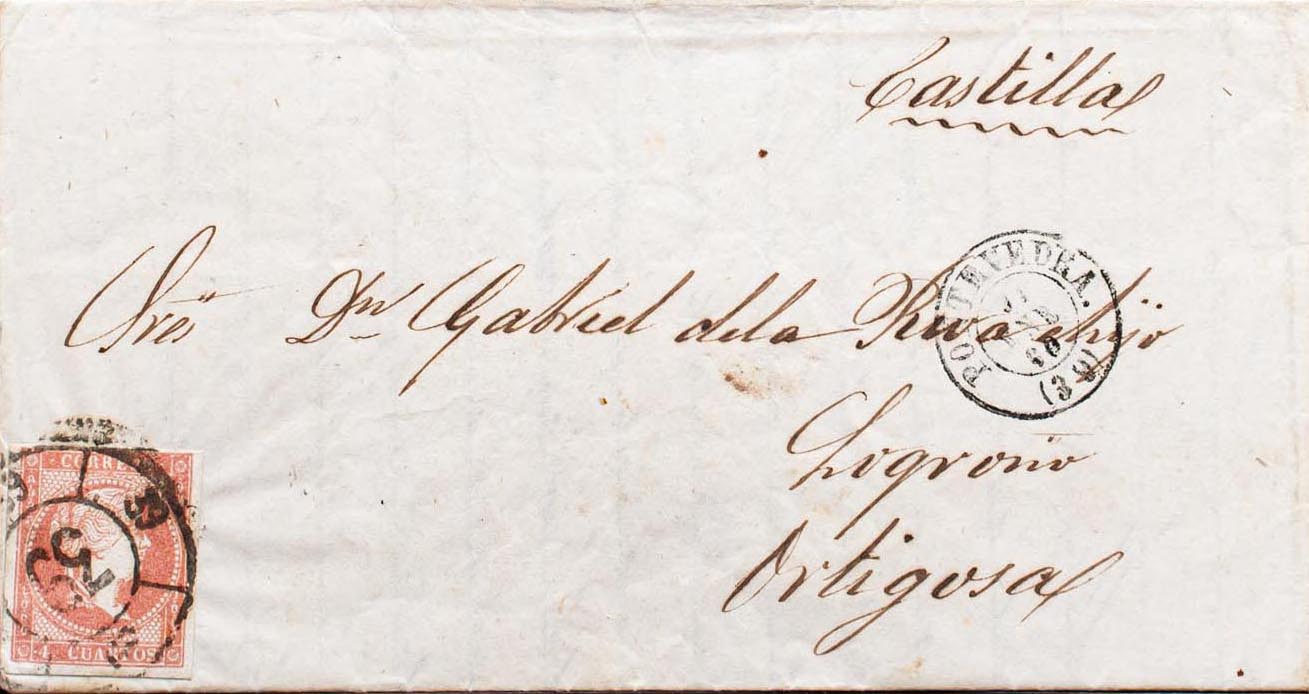 Castilla
Sres Dn Gabriel dela Riva ehijo
Logroño
Ortigosa
PONTEVEDRA.
60
(39)
CORREOS
4 CUARTOS